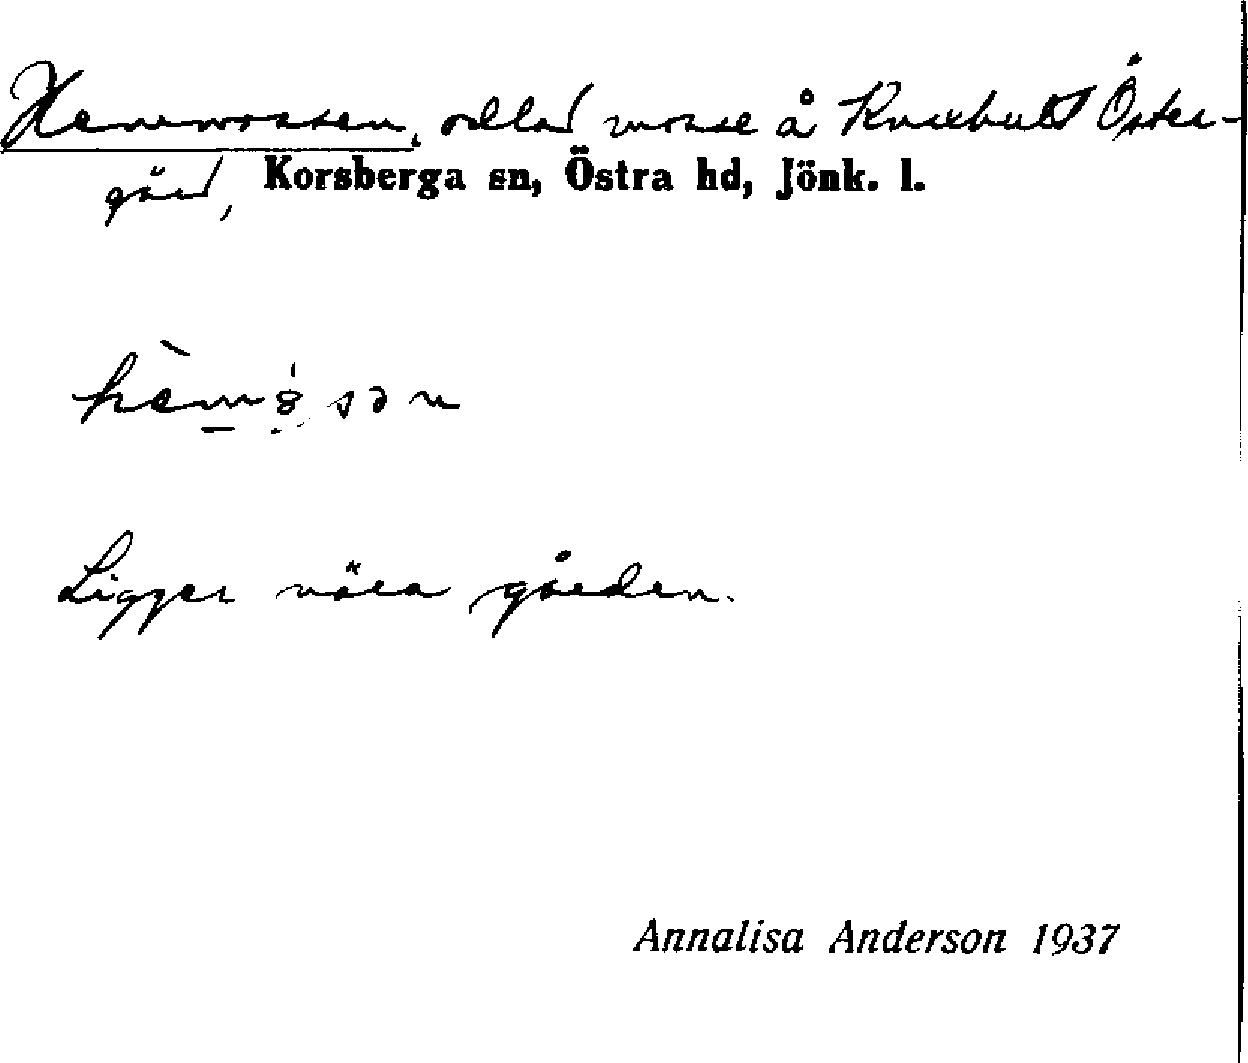 Hemmossen, odlad mosse å Knixhult Öster-
gård, Korsberga sn, Östra hd, Jönk. l.
Ligger nära gården.
Annalisa Anderson 1937